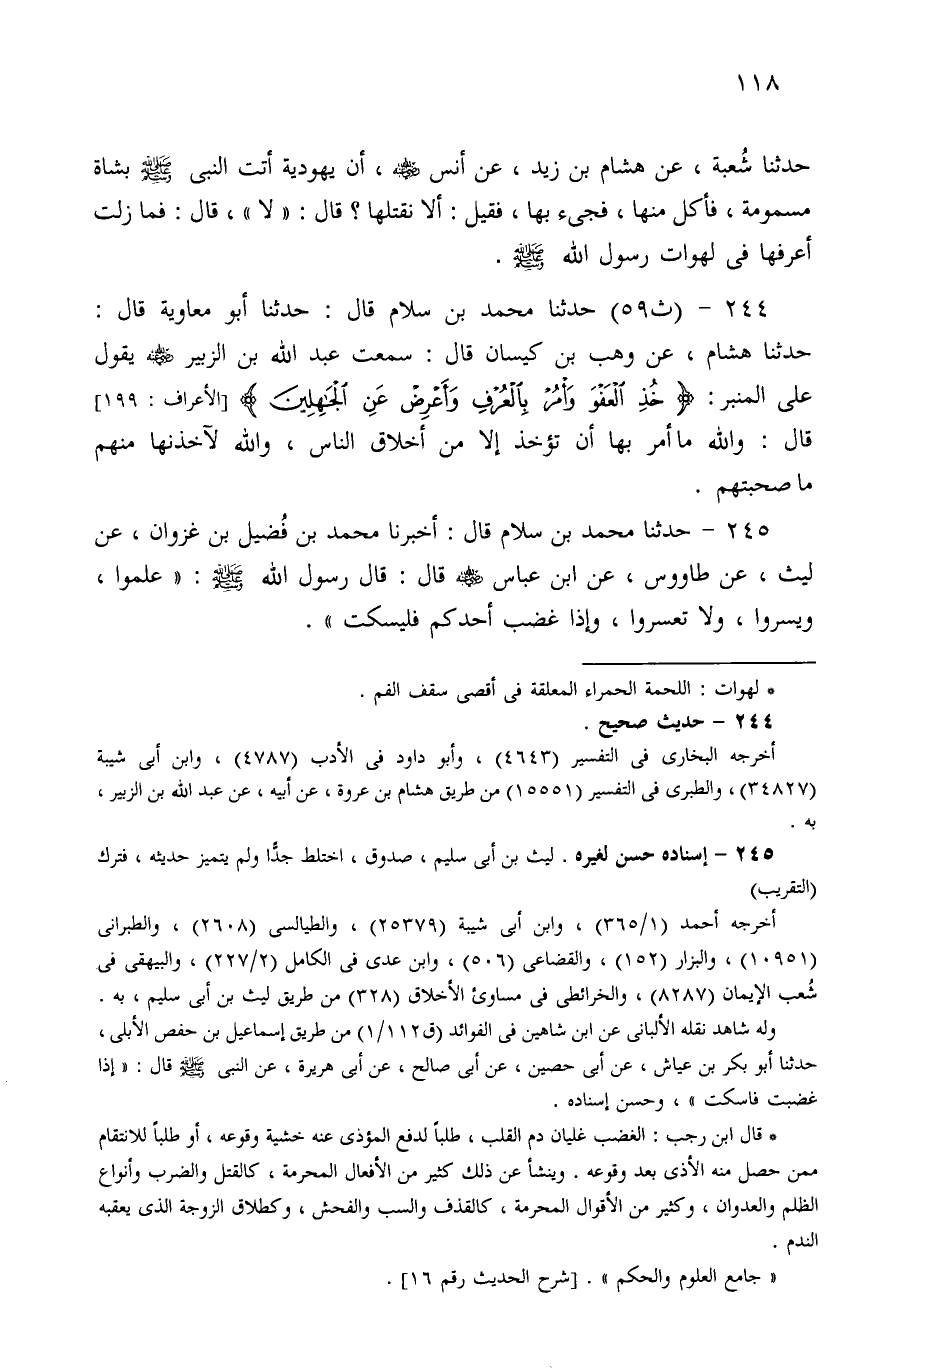 ١١٨
حدثنا شُعبة ، عن هشام بن زيد ، عن أنس رضي الله عنه ، أن يهودية أتت النبى ﷺ بشاة
مسمومة ، فأكل منها ، فجىء بها ، فقيل : ألا نقتلها ؟ قال : « لا » ، قال : فما زلت
أعرفها فى لهوات رسول الله ﷺ .
٢٤٤ – (ث٥٩) حدثنا محمد بن سلام قال : حدثنا أبو معاوية قال :
حدثنا هشام ، عن وهب بن كيسان قال : سمعت عبد الله بن الزبير رضي الله عنه يقول
على المنبر : ﴿ خُذِ ٱلْعَفْوَ وَأْمُرْ بِٱلْعُرْفِ وَأَعْرِضْ عَنِ ٱلْجَٰهِلِينَ ﴾ [الأعراف : ١٩٩]
قال : والله ما أمر بها أن تؤخذ إلا من أخلاق الناس ، والله لآخذنها منهم
ما صحبتهم .
٢٤٥ – حدثنا محمد بن سلام قال : أخبرنا محمد بن فُضيل بن غزوان ، عن
ليث ، عن طاووس ، عن ابن عباس رضي الله عنه قال : قال رسول الله ﷺ : « علموا ،
ويسروا ، ولا تعسروا ، وإذا غضب أحدكم فليسكت » .
* لهوات : اللحمة الحمراء المعلقة فى أقصى سقف الفم .
٢٤٤ – حديث صحيح .
أخرجه البخارى فى التفسير (٤٦٤٣) ، وأبو داود فى الأدب (٤٧٨٧) ، وابن أبى شيبة
(٣٤٨٢٧) ، والطبرى فى التفسير (١٥٥٥١) من طريق هشام بن عروة ، عن أبيه ، عن عبد الله بن الزبير ،
به .
٢٤٥ – إسناده حسن لغيره . ليث بن أبى سليم ، صدوق ، اختلط جدًّا ولم يتميز حديثه ، فترك
(التقريب)
أخرجه أحمد (٣٦٥/١) ، وابن أبى شيبة (٢٥٣٧٩) ، والطيالسى (٢٦٠٨) ، والطبرانى
(١٠٩٥١) ، والبزار (١٥٢) ، والقضاعى (٥٠٦) ، وابن عدى فى الكامل (٢٢٧/٢) ، والبيهقى فى
شُعب الإيمان (٨٢٨٧) ، والخرائطى فى مساوئ الأخلاق (٣٢٨) من طريق ليث بن أبى سليم ، به .
وله شاهد نقله الألبانى عن ابن شاهين فى الفوائد (ق١/١١٢) من طريق إسماعيل بن حفص الأبلى ،
حدثنا أبو بكر بن عياش ، عن أبى حصين ، عن أبى صالح ، عن أبى هريرة ، عن النبى ﷺ قال : « إذا
غضبت فاسكت » ، وحسن إسناده .
* قال ابن رجب : الغضب غليان دم القلب ، طلباً لدفع المؤذى عنه خشية وقوعه ، أو طلباً للانتقام
ممن حصل منه الأذى بعد وقوعه . وينشأ عن ذلك كثير من الأفعال المحرمة ، كالقتل والضرب وأنواع
الظلم والعدوان ، وكثير من الأقوال المحرمة ، كالقذف والسب والفحش ، وكطلاق الزوجة الذى يعقبه
الندم .
« جامع العلوم والحكم » . [شرح الحديث رقم ١٦] .